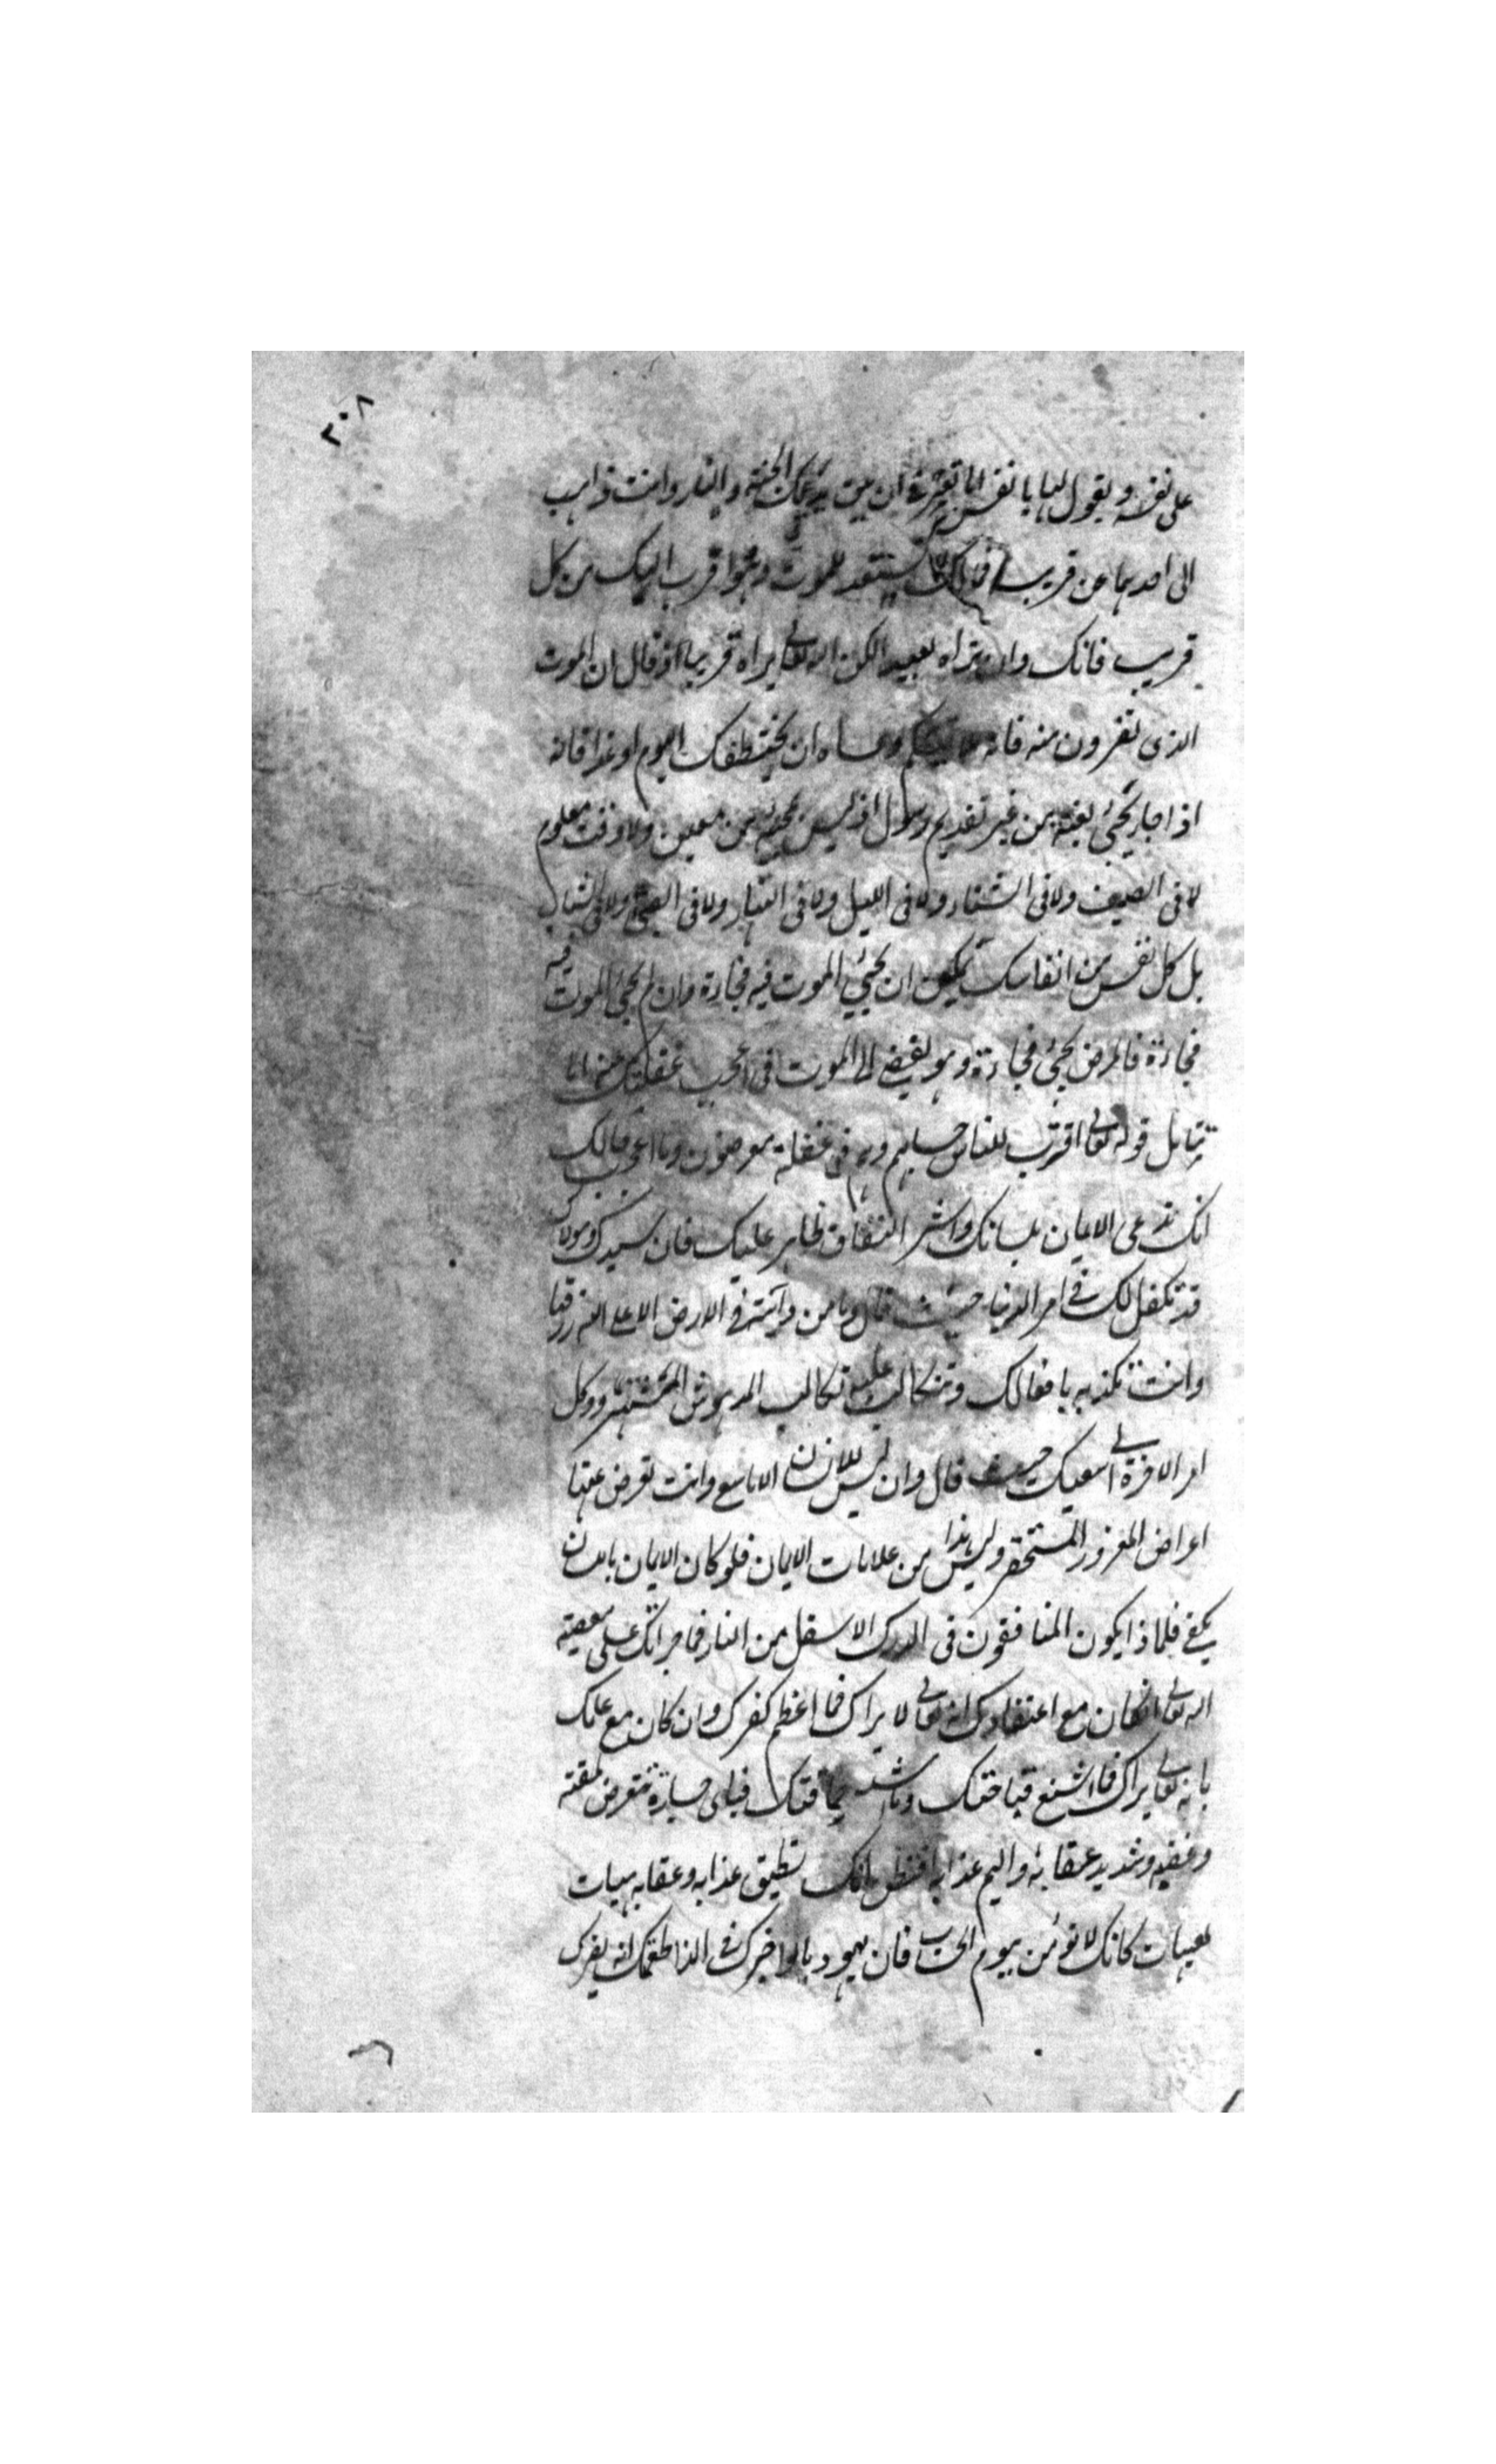 ٢٠٨
على نفسه ويقول لها يا نفس اما تعترفين ان بين يديك الجنة والنار وانت ذاهب
الى احدهما عن قريب فمالك لا تستعد للموت وهو اقرب اليك من كل
قريب فانك وان تراه بعيدا لكن الله تعالى يراه قريبا اذ قال ان الموت
الذى تفرون منه فانه ملاقيكم وعساه ان يختطفك اليوم او غدا فانه
اذا جاء يجئ بغتة من غير تقديم رسول اذ ليس لمجيئه زمن معين ولا وقت معلوم
لا فى الصيف ولا فى الشتاء ولا فى الليل ولا فى النهار ولا فى الصبى ولا فى الشباب
بل كل نفس من انفاسك يمكن ان يجئ الموت فيه فجاءة وان لم يجئ الموت فيه
فجاءة فالمرض يجئ فجاءة وهو يفضى الى الموت فما اعجب غفلتك عنه اما
تتامل قوله تعالى اقترب للناس حسابهم وهم فى غفلة معرضون وما اعجب حالك
انك تدعى الايمان بلسانك واثر النفاق ظاهر عليك فان سيدك ومولاك
قد تكفل لك فى امر الدنيا حيث قال وما من دابة فى الارض الا على الله رزقها
وانت تكذبه بافعالك وتتكالب عليه تكالب المدهوش المستهتر ووكل
امر الاخرة الى سعيك حيث قال وان ليس للانسان الا ما سعى وانت تعرض عنها
اعراض المغرور المستحقر وليس هذا من علامات الايمان فلو كان الايمان باللسان
يكفى فلماذا يكون المنافقون فى الدرك الاسفل من النار فما جراتك على معصية
الله تعالى ان كان مع اعتقادك انه تعالى لا يراك فما اعظم كفرك وان كان مع علمك
بانه تعالى يراك فما اشنع قباحتك وما اشد حماقتك فباى جسارة تتعرض لمقته
وغضبه وشديد عقابه واليم عذابه افتظن انك تطيق عذابه وعقابه هيهات
هيهات كانك لا تؤمن بيوم الحساب فان يهوديا لو اخبرك فى الذ اطعمتك انه يضرك